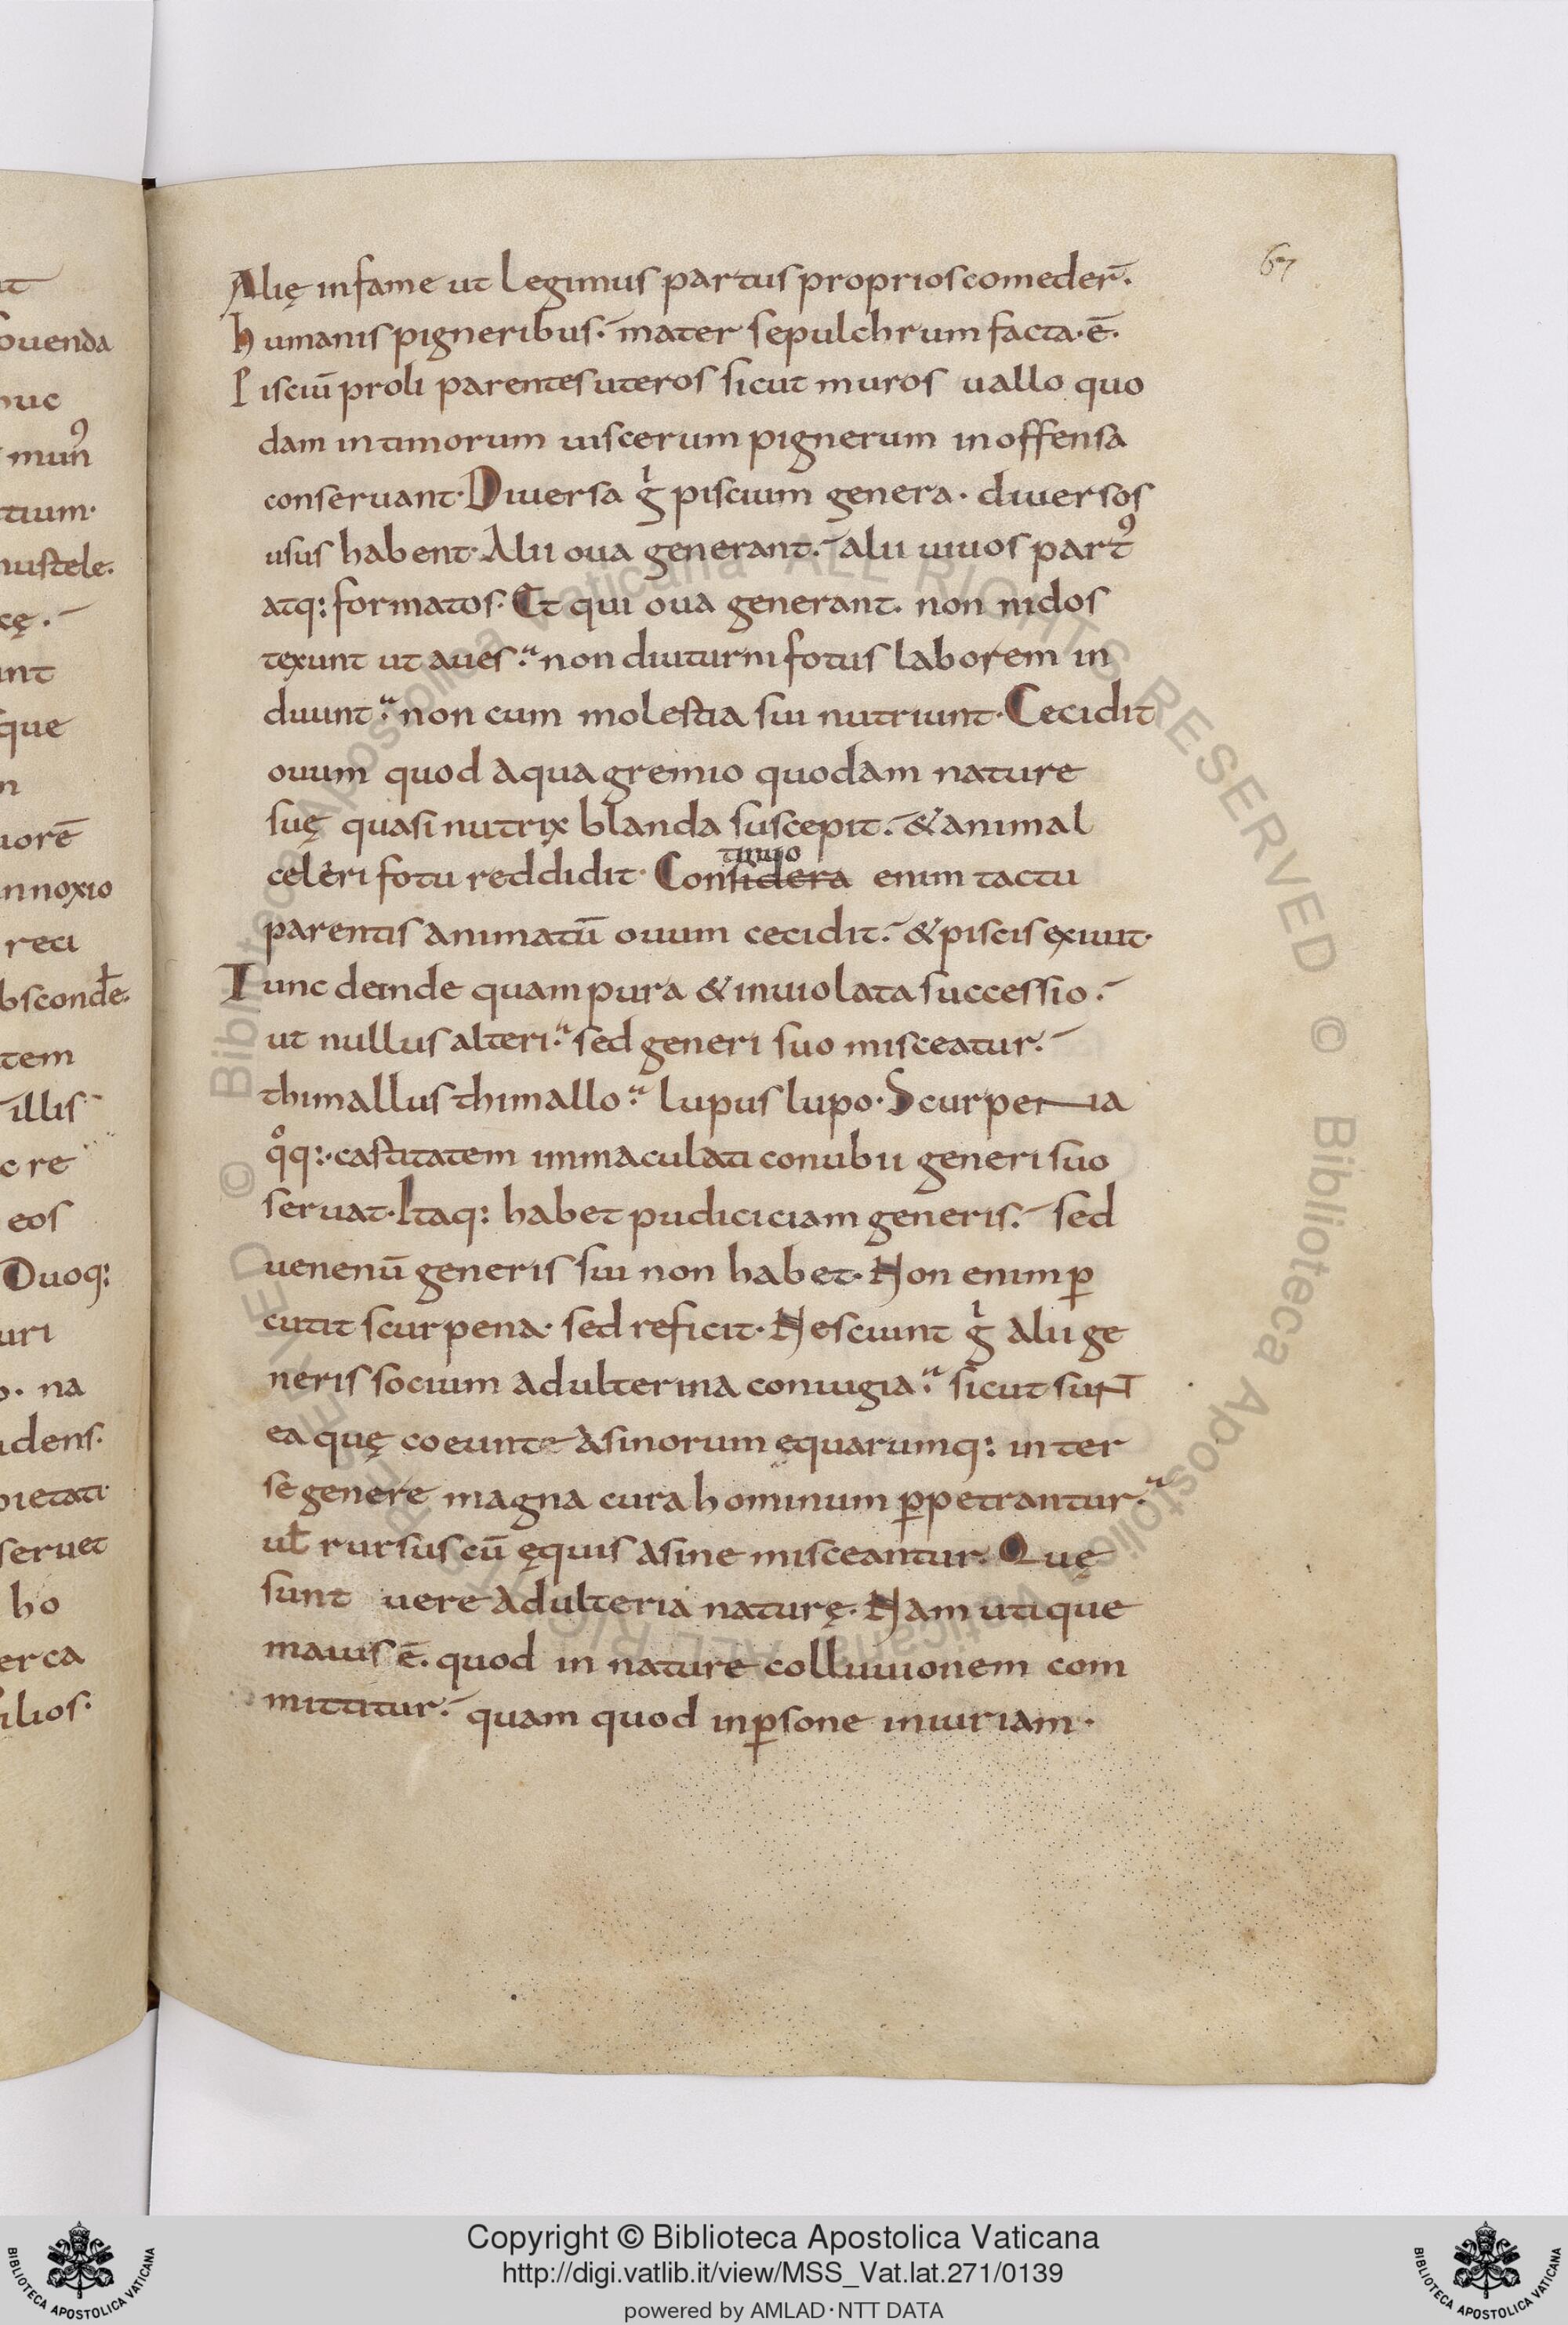 67
Alię in fame ut legimus partus proprios comeder̄.
humanis pigneribus. mater sepulchrum facta. ē.
Pisciū proli parentes uteros sicut muros uallo quo
dam intimorum uiscerum pignerum inoffensa
conseruant. Diuersa gͥ piscium genera. diuersos
usus habent. Alii oua generant. alii uiuos partꝰ
atq: formatos. Et qui oua generant. non nidos
texunt ut aues. non diuturni fotus laborem in
duunt. non cum molestia sui nutriunt. Cecidit
ouum quod aqua gremio quodam nature
suę quasi nutrix blanda suscepit. & animal
celeri fotu reddidit. Considera enim tactu
tinuo
parentis animatū ouum cecidit. & piscis exiuit.
Tunc deinde quam pura & inuiolata successio.
ut nullus alteri. sed generi suo misceatur.
thimallus thimallo. lupus lupo. Scurpenia
qͦq: castitatem immaculati conubii generi suo
seruat. Itaq: habet pudiciciam generis. sed
uenenū generis sui non habet. Non enim ꝑ
cutit scurpena. sed reficit. Nesciunt gͥ alii ge
neris socium adulterina coniugia. sicut sunt
ea quę coeunte asinorum ęquarumq: inter
se genere magna cura hominum ꝑpetrantur.
ul̄ rursus cū ęquis asine misceantur. Quę
sunt uere adulteria naturę. Nam utique
mauis ē. quod in nature colluuionem com
mittitur. quam quod inꝑsone iniuriam.
ouenda
nuc
munꝰ
tium.
mustele.
cę.
unt
que
uorē
innoxio
reci
bscond̄e.
tem
illis
c re
eos
Duoq:
uri
o. na
udens.
pietati
seruet
ho
erca
ilios.
© Biblioteca Apostolica Vaticana ALL RIGHTS RESERVED © Biblioteca Apostolica Vaticana ALL RIGHTS RESERVED
Copyright © Biblioteca Apostolica Vaticana
http://digi.vatlib.it/view/MSS_Vat.lat.271/0139
powered by AMLAD·NTT DATA
BIBLIOTECA APOSTOLICA VATICANA
BIBLIOTECA APOSTOLICA VATICANA